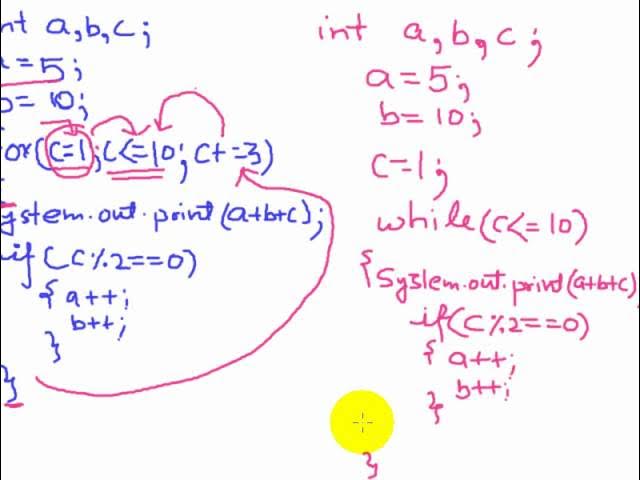 int a,b,c;
a=5;
b=10;
for(c=1;c<=10;c+=3)
System.out.print(a+b+c);
if(c%2==0)
{ a++;
b++;
}
}
int a,b,c;
a=5;
b=10;
c=1;
while(c<=10)
{
System.out.print(a+b+c)
if(c%2==0)
{ a++;
b++;
}
}